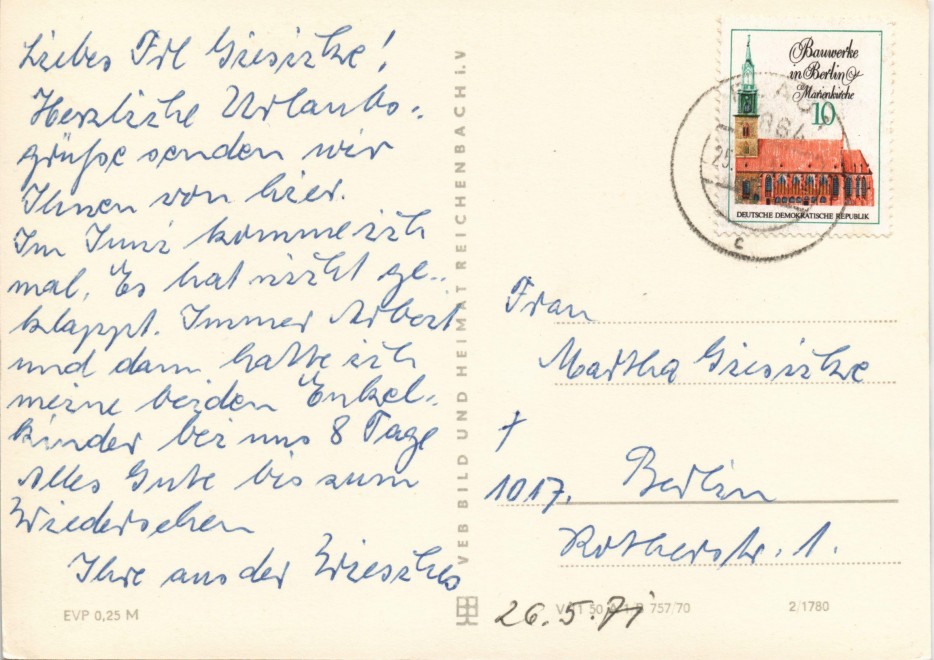 Liebes Frl Giesitzke!
Herzliche Urlaubs-
grüße senden wir
Ihnen von hier.
Im Juni komme ich
mal. Es hat nicht ge-
klappt. Immer Arbeit
und dann hatte ich
meine beiden Enkel-
kinder bei uns 8 Tage
Alles Gute bis zum
Wiedersehen
Ihre aus der
EVP 0,25 M
VEB BILD UND HEIMAT REICHENBACH i. V
Bauwerke
in Berlin
Marienkirche
10
DEUTSCHE DEMOKRATISCHE REPUBLIK
c
Frau
Martha Giesitzke
1017. Berlin
Rotherstr. 1.
26.5.71
757/70
2/1780